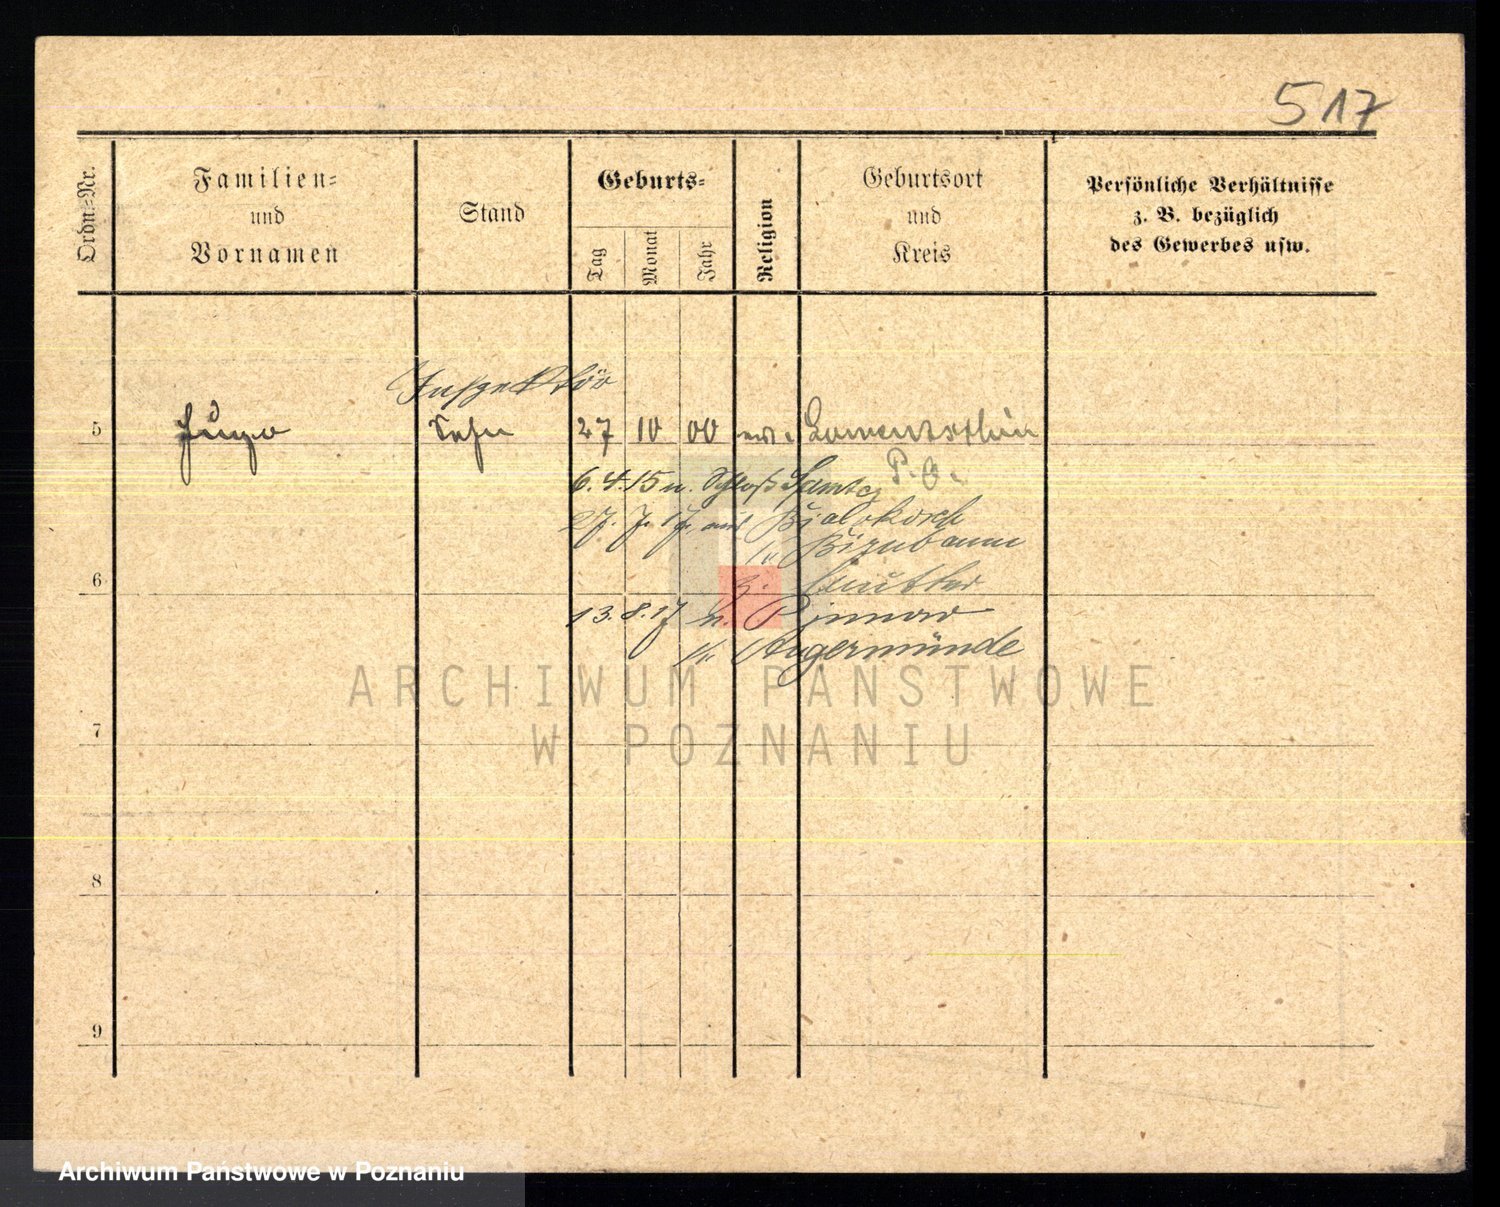 517
Ordn.-Nr.
Familien-
und
Vornamen
Stand
Geburts-
Tag
Monat
Jahr
Religion
Geburtsort
und
Kreis
Persönliche Verhältnisse
z. B. bezüglich
des Gewerbes usw.
Inspektor
5 Hugo Sohn 27 10 00 Lamentsthin
P. O.
6.4.15 n. Schloß
27. 7. 17. aus Bialokosch
Birnbaum
6 z. Mutter
13.8.17 n. Pinnow
Kr. Angermünde
ARCHIWUM PAŃSTWOWE
W POZNANIU
7
8
9
Archiwum Państwowe w Poznaniu